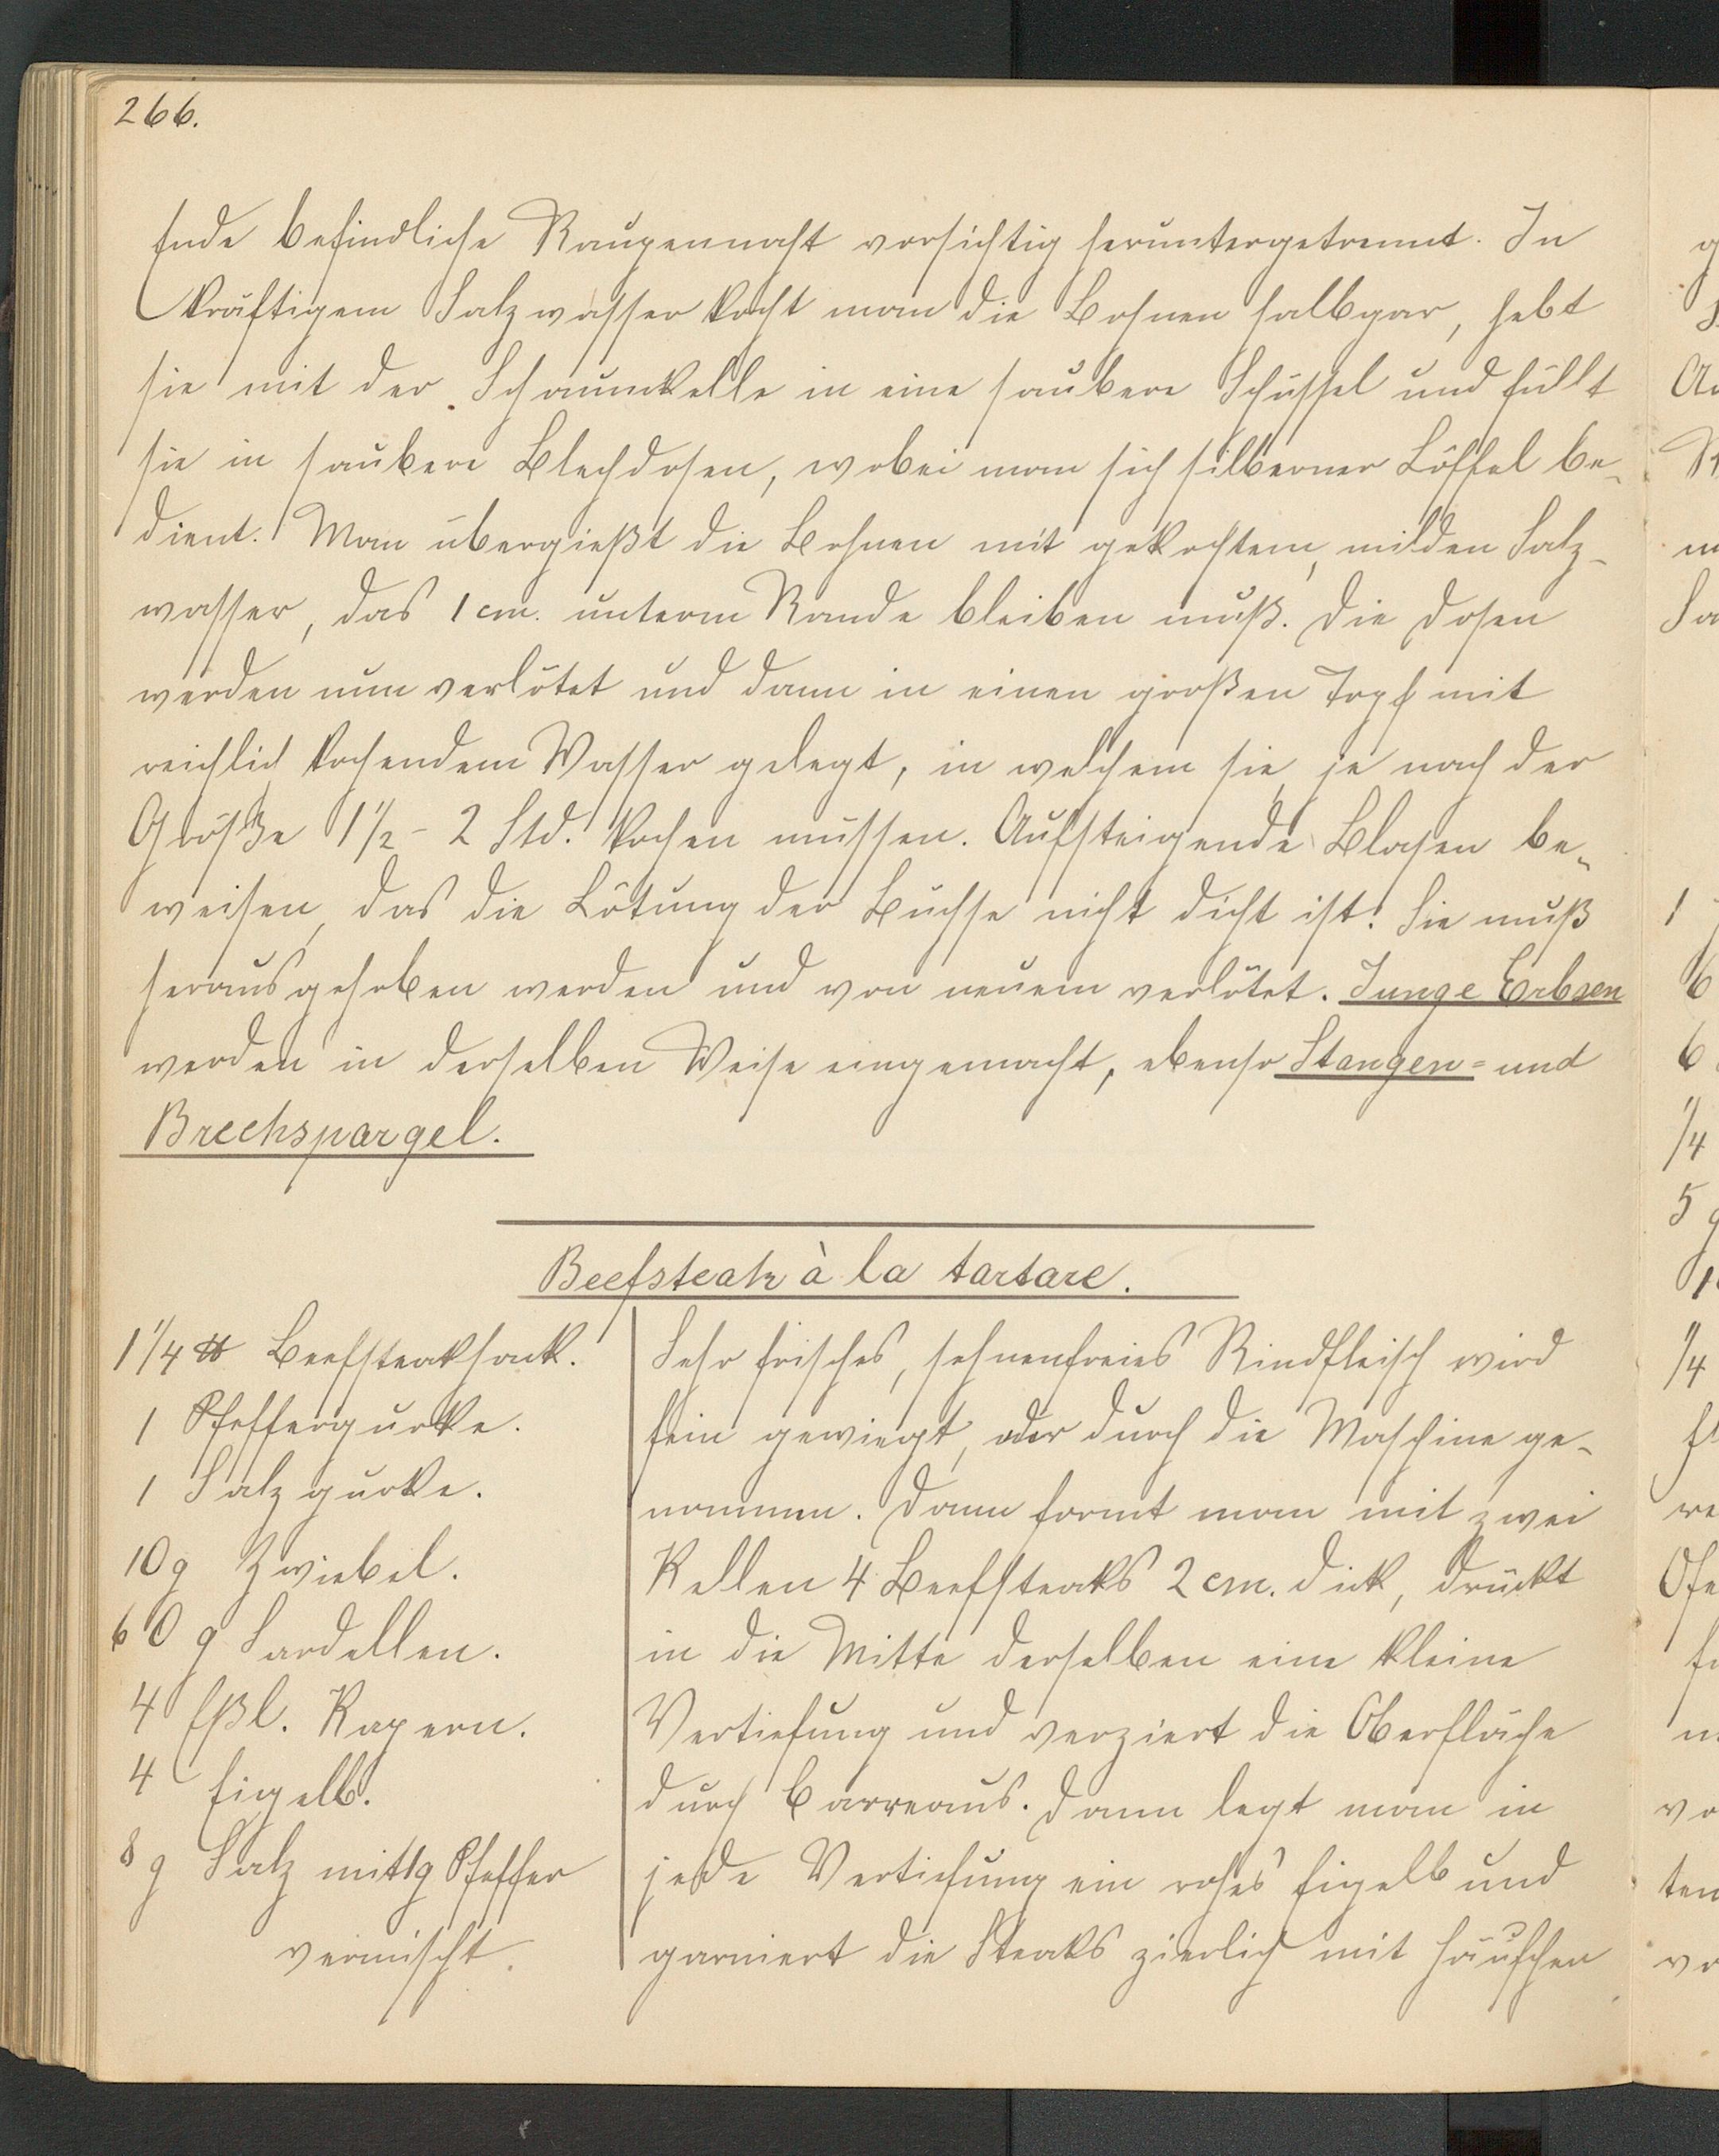 266.
Ende befindliche Raupennaht vorsichtig heruntergetrennt. In
kräftigem Salzwasser kocht man die Bohnen halbgar, hebt
sie mit der Schaumkelle in eine saubere Schüssel und füllt
sie in saubere Blechdosen, wobei man sich silberner Löffel be-
dient. Man übergießt die Bohnen mit gekochtem, milden Salz-
wasser, das 1 cm. unterm Rande bleiben muß. Die Dosen
werden nun verlötet und dann in einen großen Topf mit
reichlich kochendem Wasser gelegt, in welchem sie je nach der
Größe 1 1/2 - 2 Std. kochen müssen. Aufsteigende Blasen be-
weisen, das die Lötung der Büchse nicht dicht ist. Sie muß
herausgehoben werden und von neuem verlötet. Junge Erbsen
werden in derselben Weise eingemacht, ebenso Stangen= und
Brechspargel.
Beefsteak à la tartare.
1 1/4 ℔ Beefsteakhack.
1 Pfeffergurke.
1 Salzgurke.
10 g Zwiebel.
60 g Sardellen.
4 Eßl. Kapern.
4 Eigelb.
8 g Salz mit 1g Pfeffer
vermischt.
Sehr frisches, sehnenfreies Rindfleisch wird
fein gewiegt, oder durch die Maschine ge-
nommen. Dann formt man mit zwei
Kellen 4 Beefsteaks 2 cm. dick, drückt
in die Mitte derselben eine kleine
Vertiefung und verziert die Oberfläche
durch Carreaus. Dann legt man in
jede Vertiefung ein rohes Eigelb und
garniert die Steaks zierlich mit Häufchen